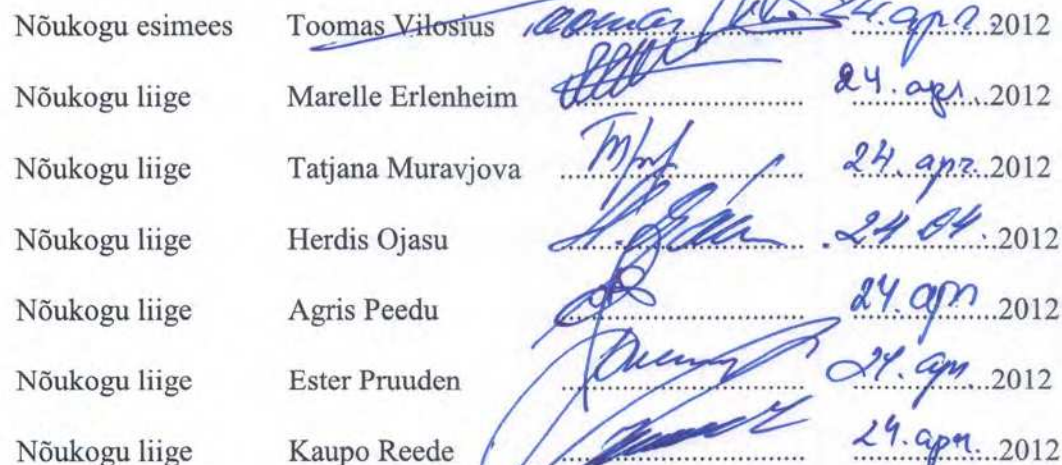 Nõukogu esimees Toomas Vilosius 24. apr. 2012
Nõukogu liige Marelle Erlenheim 24. apr. 2012
Nõukogu liige Tatjana Muravjova 24. apr. 2012
Nõukogu liige Herdis Ojasu 24 04. 2012
Nõukogu liige Agris Peedu 24. apr 2012
Nõukogu liige Ester Pruuden 24. apr. 2012
Nõukogu liige Kaupo Reede 24. apr. 2012